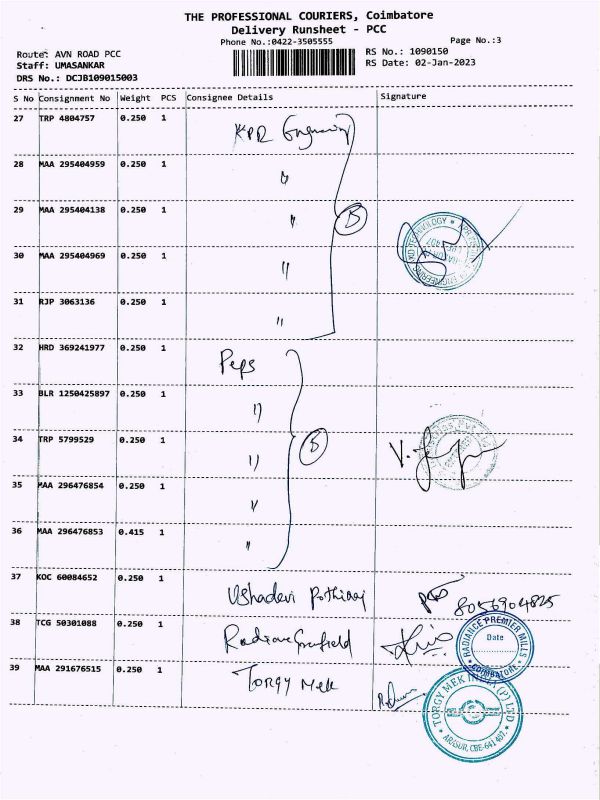 THE PROFESSIONAL COURIERS, Coimbatore
Delivery Runsheet - PCC
Phone No.:0422-3505555
Page No.:3
Route: AVN ROAD PCC
RS No.: 1090150
Staff: UMASANKAR
RS Date: 02-Jan-2023
DRS No.: DCJB109015003
S No Consignment No Weight PCS Consignee Details Signature
27 TRP 4804757 0.250 1 KPR Engineering
28 MAA 295404959 0.250 1 "
29 MAA 295404138 0.250 1 " 5
30 MAA 295404969 0.250 1 "
31 RJP 3063136 0.250 1 "
32 HRD 369241977 0.250 1 Peps
33 BLR 1250425897 0.250 1 "
34 TRP 5799529 0.250 1 " 5
35 MAA 296476854 0.250 1 "
36 MAA 296476853 0.415 1 "
37 KOC 60084652 0.250 1 Ushadevi Pothiraj 8056904825
38 TCG 50301088 0.250 1
RADIANCE PREMIER MILLS
Date
COIMBATORE
39 MAA 291676515 0.250 1 TORGY MEK
TORGY MEK INDIA (P) LTD
ARASUR, CBE-641 407.